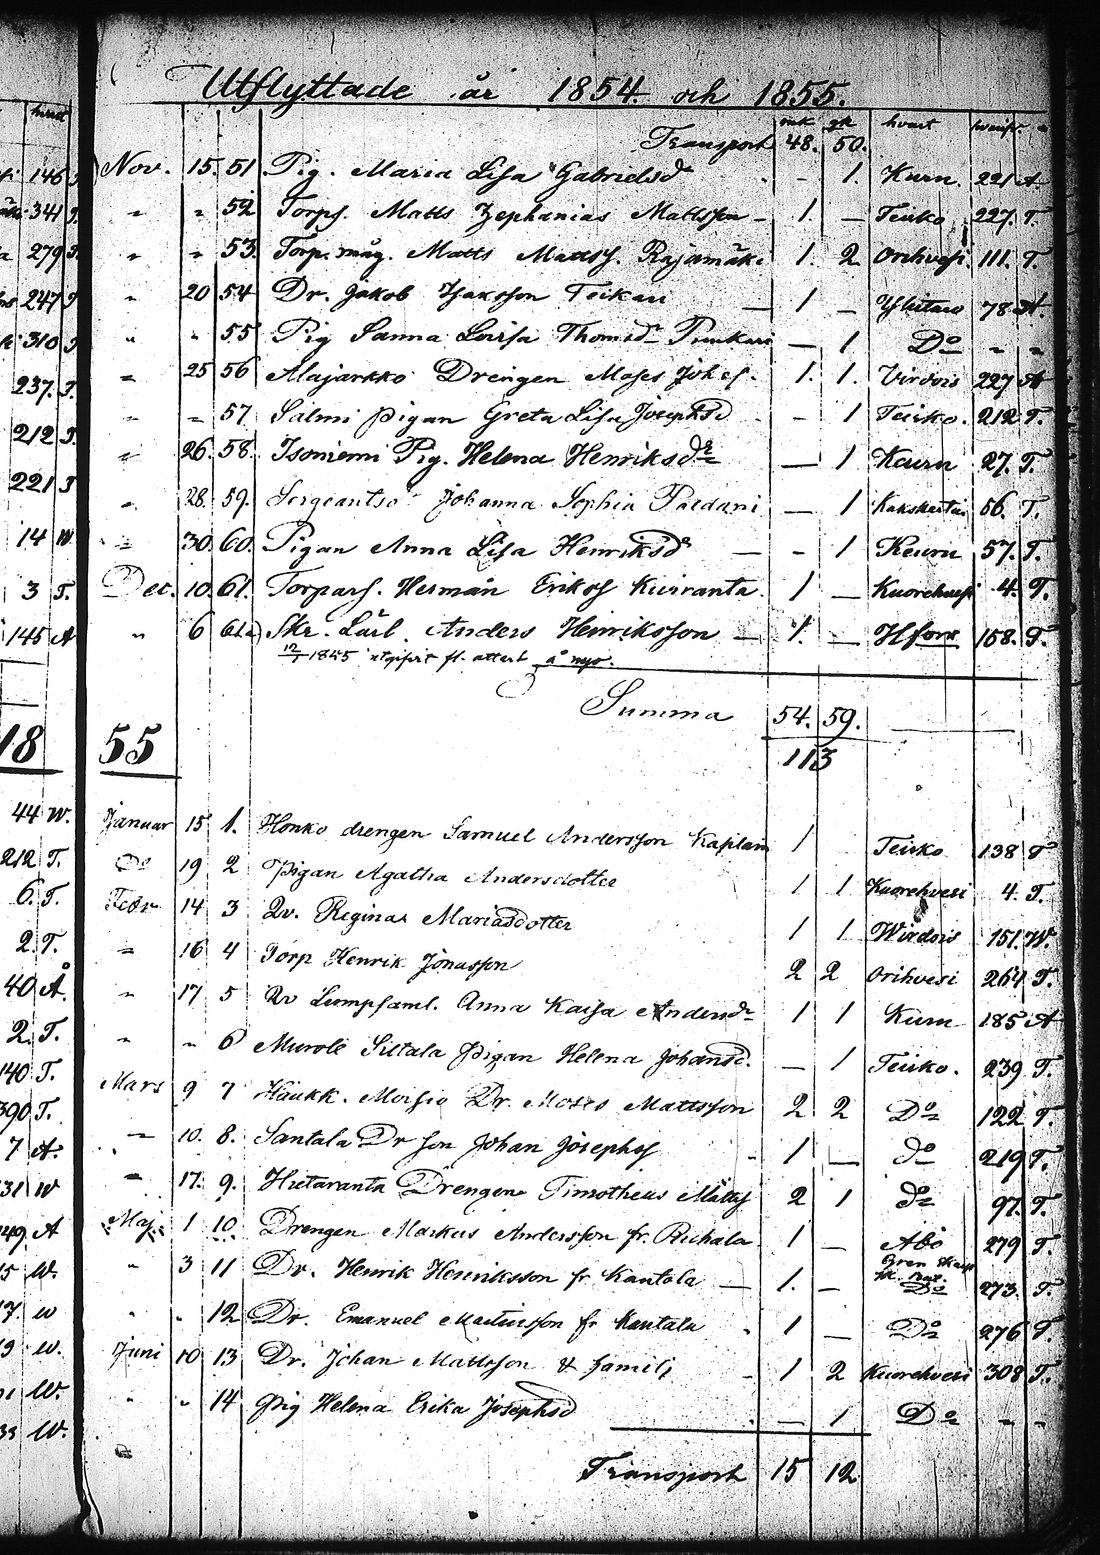 Utflyttade år 1854 och 1855.
hvart
Transport 48. 50.
146 Nov. 15. 51 Pig. Maria Lisa Gabrielsdr - 1. Kuru. 221 A
341 " " 52 Torps. Matts Zephanias Mattsson - 1. — Teisko 227. T.
279 " " 53. Torp. måg. Matts Mattss. Rajamäki 1. 2 Orihvesi 111. T.
247 " 20 54 Dr. Jakob Isaksson Teikari — 1 — 78 A.
310 " " 55 Pig Sanna Lovisa Thomasdr — 1 Do " "
237. T. " 25 56 Alajarkko Drengen Moses Johss. 1. 1. Virdois 227 A
212 T. " " 57. Salmi pigan Greta Lisa Josephsd - 1 Teisko. 212 T.
221 " 26. 58. Isoniemi Pig. Helena Henriksdr — 1 Kuru 27. T.
14 W " 28. 59. Johanna Sophia — 1 56. T.
3 T. " 30. 60. Pigan Anna Lisa Henriksdr — - 1 Keuru 57. T.
145 A Dec. 10. 61. Torpars. Herman Erikss Kuiranta 1 — Kuorehvesi 4. T.
" 6 61a) Skr. Lärl. Anders Henriksson — 1. — Hfors 158. T.
12/1 1855 utgifvit fl. attest å nyo.
Summa 54. 59.
113
18 55
44 W. Januar 15 1. Honko drengen Samuel Andersson Kaplain 1 Teisko 138 T
212 T. Do 19 2 Pigan Agatha Andersdotter 1 1 Kuorehvesi 4. T.
6. T. Febr 14 3 Qv. Reginas Mariasdotter 1 1 Wirdois 151. W.
2. T. " 16 4 Torp Henrik Jonasson 2 2 Orihvesi 264 T.
40 A. " 17 5 Qv Anna Kaisa Andersdr 1 1 Kuru 185 A
2. T. " " 6 Murole Siltala Pigan Helena Johansd. — 1 Teisko. 239 T.
140 T. Mars 9 7 Haukk. Moisio Dr. Moses Mattsson 2 2 Do 122 T.
390 T. " 10. 8. Santala Dr son Johan Josephss 1 — do 219 T.
7 A. " 17. 9. Hietaranta Drengen Timotheus Matts 2 1 do 97. T.
31 W Maj 1 10. Drengen Markus Andersson fr. Ruhala 1 — Åbo 279 T.
149. A " 3 11 Dr. Henrik Henriksson fr Kantola — 1. - Do 273. T.
" " 12 Dr. Emanuel fr Kantola 1 — Do 276 T.
Juni 10 13 Dr. Johan Mattsson & familj 1 2 Kuorehvesi 308 T.
" " 14 Pig Helena Erika Josephsd — 1 Do - -
Transport 15 12